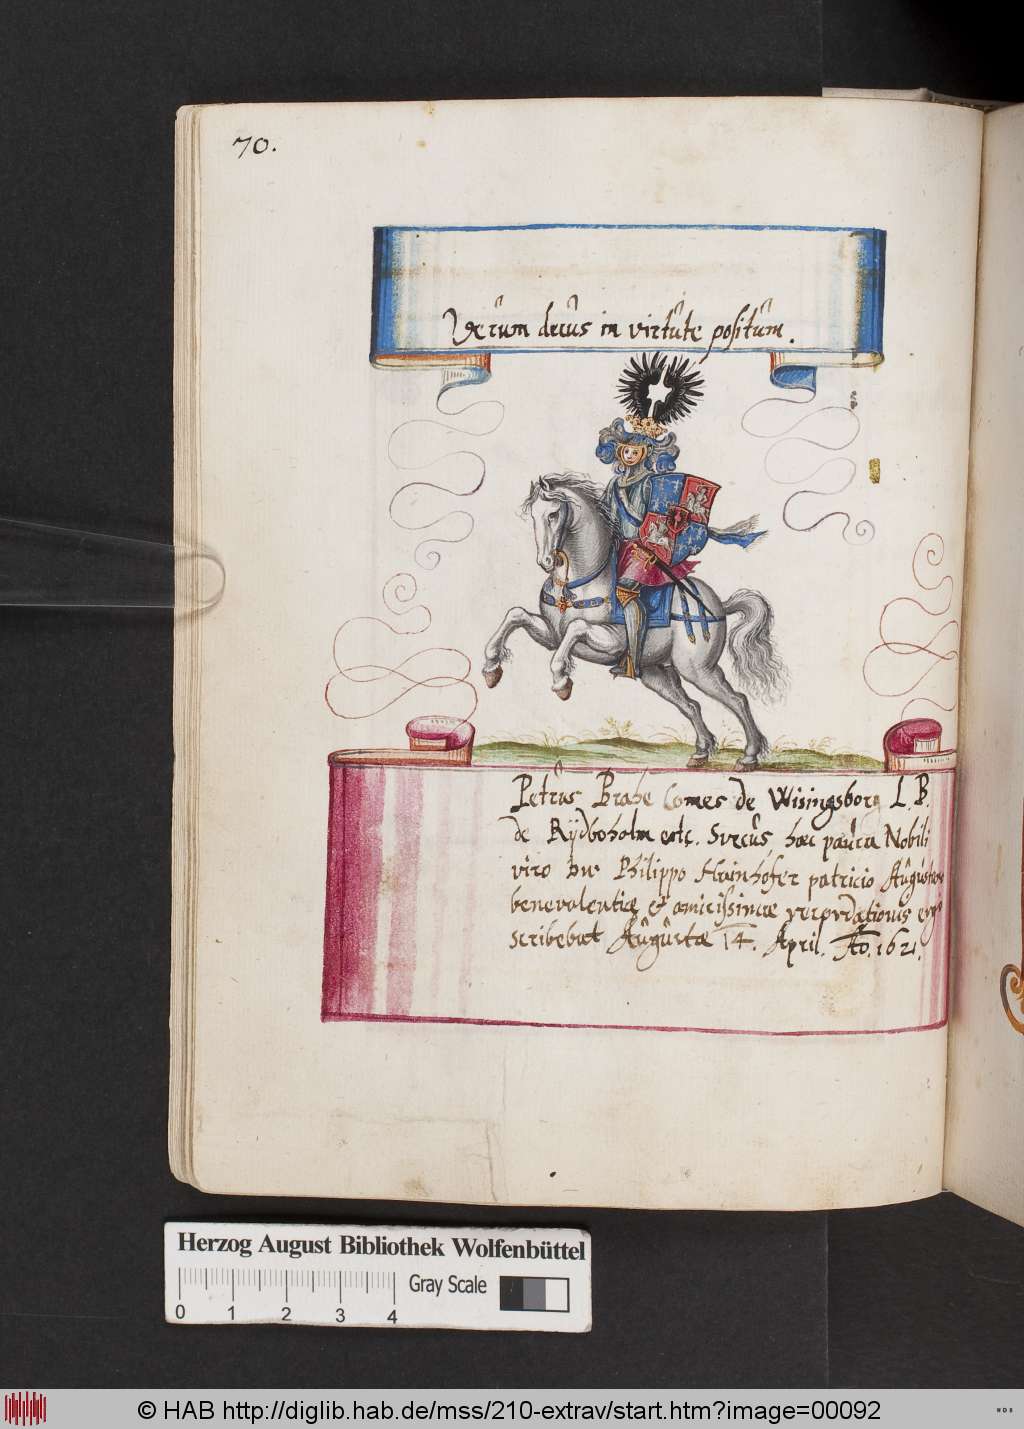 70.
Verum decus in virtute positum.
Petrus Brahe Comes de Wisingsborg L. B.
de Rÿdboholm etc. Svecus, haec pauca Nobili
viro Philippo Hainhofer patricio
benevolentiae et amicissimae
scribebat Augustae 14. April. Ao. 1621.
Herzog August Bibliothek Wolfenbüttel
Gray Scale
0 1 2 3 4
© HAB http://diglib.hab.de/mss/210-extrav/start.htm?image=00092